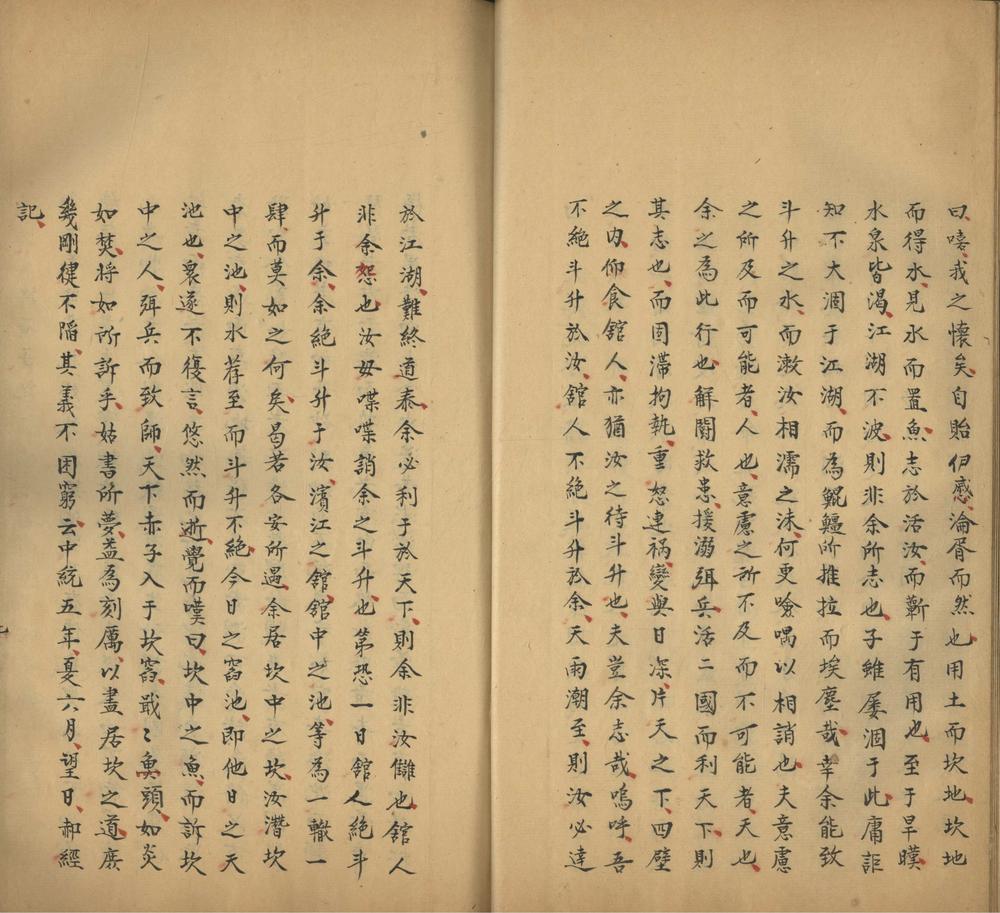 曰嘻我之懷矣自貽伊慼淪胥而然也用土而坎地坎地
而得水見水而置魚志於活汝而蘄于有用也至于旱暵
水泉皆渴江湖不波則非余所志也子雖屢涸于此庸詎
知不大涸于江湖而為鯤鱷所推拉而埃塵哉幸余能致
斗升之水而漱汝相濡之沫何更噞喁以相誚也夫意慮
之所及而可能者人也意慮之所不及而不可能者天也
余之為此行也解鬬救患援溺弭兵活二國而利天下則
其志也而固滯拘執重怒連禍變與日深片天之下四壁
之内仰食舘人亦猶汝之待斗升也夫豈余志哉嗚呼吾
不絶斗升於汝舘人不絶斗升於余天雨潮至則汝必達
於江湖難終道泰余必利于於天下則余非汝讎也舘人
非余怨也汝毋喋喋誚余之斗升也第恐一日舘人絶斗
升于余余絶斗升于汝濱江之舘舘中之池等為一轍一
肆而莫如之何矣曷若各安所遇余居坎中之坎汝潛坎
中之池則水荐至而斗升不絶今日之窞池即他日之天
池也衆遂不復言悠然而逝覺而嘆曰坎中之魚而訴坎
中之人弭兵而致師天下赤子入于坎窞戢〻魚頭如炎
如焚将如所訴乎姑書所夢益為刻厲以盡居坎之道庶
幾剛健不陷其義不困窮云中統五年夏六月望日郝經
記